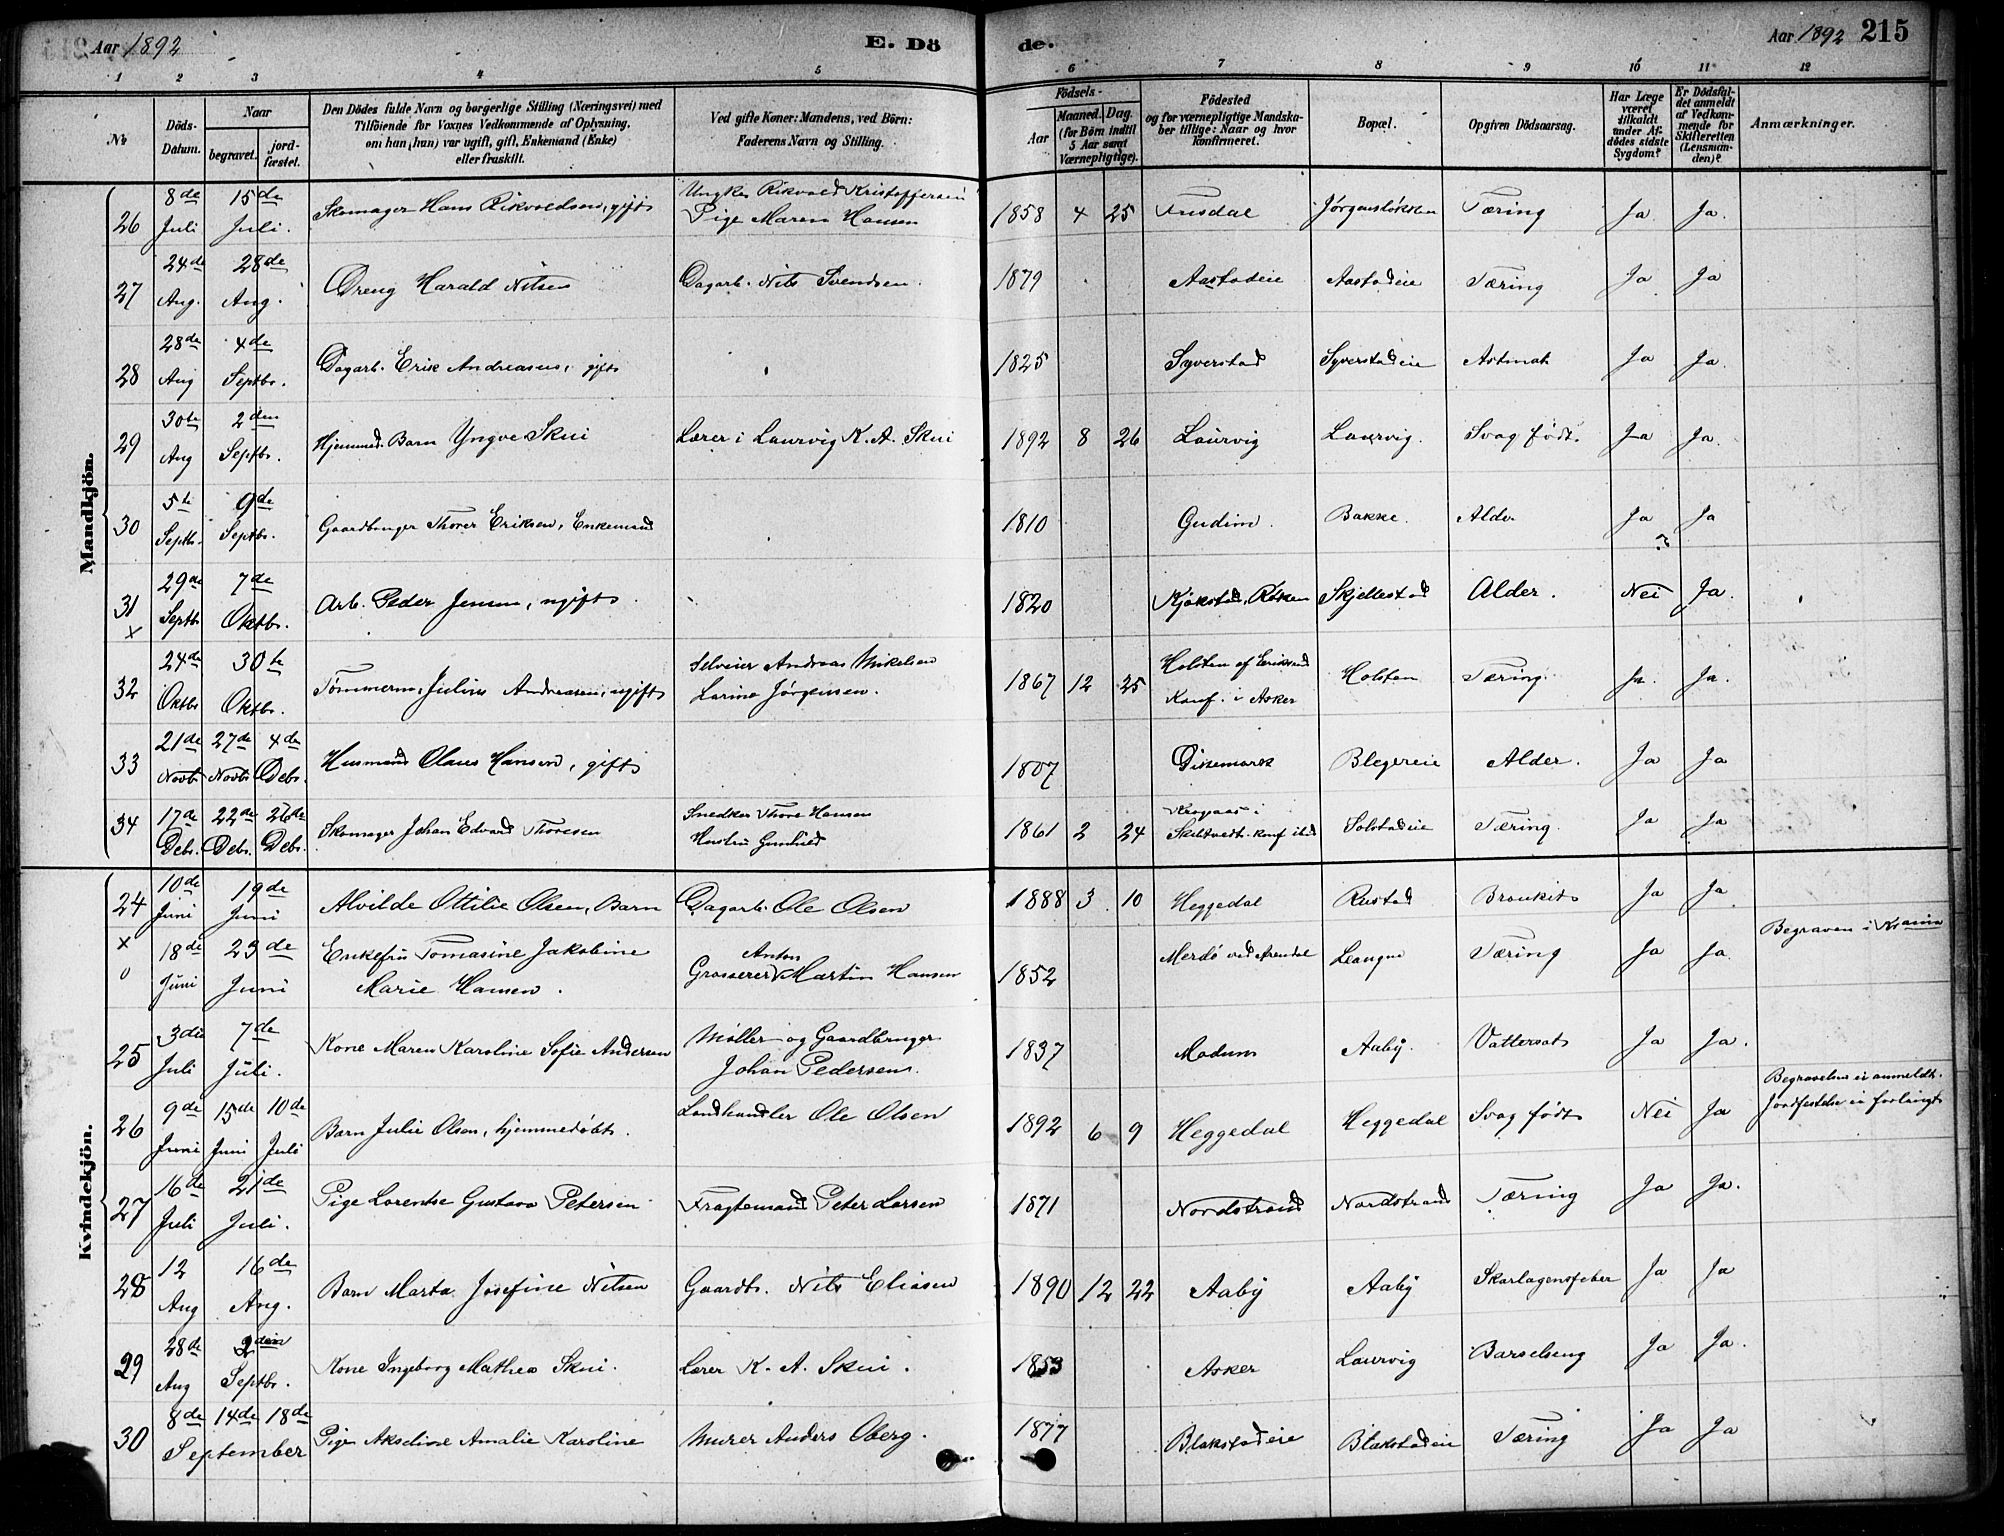 Aar 1892 E. Dö de. Aar 1892 215
1 2 3 4 5 6 7 8 9 10 11 12
No
Döds-Datum.
Naar
begravet.
jord-fæstet.
Den Dödes fulde Navn og borgerlige Stilling (Næringsvei) med
Tilföiende for Voxnes Vedkommende af Oplysning,
om han (hun) var ugift, gift, Enkemand (Enke)
eller fraskilt.
Ved gifte Koner: Mandens, ved Börn:
Faderens Navn og Stilling.
Födsels-
Aar
Maaned. Dag.
(for Börn indtil
5 Aar samt
Værnepligtige).
Födested
og for værnepligtige Mandska-
ber tillige: Naar og hvor
konfirmeret.
Bopæl.
Opgiven Dödsaarsag.
Har Læge
været
tilkaldt
under Af-
dödes sidste
Sygdom?
Er Dödsfal-
det anmeldt
af Vedkom-
mende for
Skifteretten
(Lensman-
den)?
Anmærkninger.
Mandkjön.
26 8de Juli 15de Juli. Skomager Hans Rikvoldsen, gift Ungkar Rikvold Kristoffersen
Pige Maren Hansen 1858 4 25 Fusdal Jørgensløkken Tæring Ja Ja.
27 24de Aug. 28de Aug. Dreng Harald Nilsen Dagarb. Nils Svendsen. 1879 Aastadeie Aastadeie Tæring Ja Ja
28 28de Aug 4de Septbr. Dagarb. Erik Andreasen, gift 1825 Syverstad Syverstadeie Astmah Ja Ja.
29 30te Aug 2den Septbr. Hjemmed. Barn Yngve Skui Lærer i Laurvig K. A. Skui 1892 8 26 Laurvig Laurvig. Svag født. Ja Ja.
30 5te Septbr. 9de Septbr. Gaardbruger Thorer Eriksen, Enkemand 1810 Gudim. Bakke. Alder Ja ? Ja
31 x 29de Septbr 7de Oktbr. Arb. Peder Jensen, ugift 1820 Kjøkstad, Røken Skjellestad Alder. Nei Ja.
32 24de Oktbr 30te Oktbr. Tømmerm. Julius Andreasen, ugift Selveier Andreas Mikelsen
Larine Jørgensen. 1867 12 25 Holsten af
Konf. i Asker Holsten Tæring. Ja. Ja.
33 21de Novbr 27de Novbr 4de Debr. Husmand Olaus Hansen, gift 1807 Dikemark Blegereie Alder. Ja Ja
34 17de Debr. 22de Debr. 26de Debr. Skomager Johan Edvard Thoresen Snedker Thore Hansen
Hustru Gunhild 1861 2 24 Kragaas i
Skiptvedt. konf ibd Solstadeie Tæring. Ja Ja.
Kvindekjön.
24 x 10de Juni 19de Juni Alvilde Ottilie Olsen, Barn Dagarb. Ole Olsen 1888 3 10 Heggedal Rustad Bronkit Ja Ja
0 18de Juni 23de Juni Enkefru Tomasine Jakobine
Marie Hansen. Grosserer Anton Martin Hansen 1852 Merdø ved Arendal Leangen Tæring Ja Ja. Begraven i Kr.ania
25 3die Juli 7de Juli. Kone Maren Karoline Sofie Andersen Møller og Gaardbruger
Johan Pedersen. 1837 Modum Aaby. Vattersot Ja Ja.
26 9de Juni 15de Juni 10de Juli Barn Julie Olsen, hjemmedøbt. Landhandler Ole Olsen 1892 6 9 Heggedal Heggedal Svag født Nei Ja Begravelsen ei anmeldt.
Jordfestelse ei forlangt
27 16de Juli 21de Juli. Pige Lorentse Gustava Petersen Fragtemand Peter Larsen 1871 Nordstrand Nordstrand Tæring Ja Ja.
28 12 Aug 16de Aug. Barn Marta Josefine Nilsen Gaardbr. Nils Eliasen 1890 12 22 Aaby Aaby Skarlagensfeber Ja Ja
29 28de Aug 2den Septbr. Kone Ingeborg Mathea Skui. Lærer K. A. Skui. 1853 Asker Laurvig Barselseng Ja Ja.
30 8de 14de 18de September Pige Akseline Amalie Karoline Murer Anders Oberg. 1877 Blakstadeie Blakstadeie Tæring Ja Ja